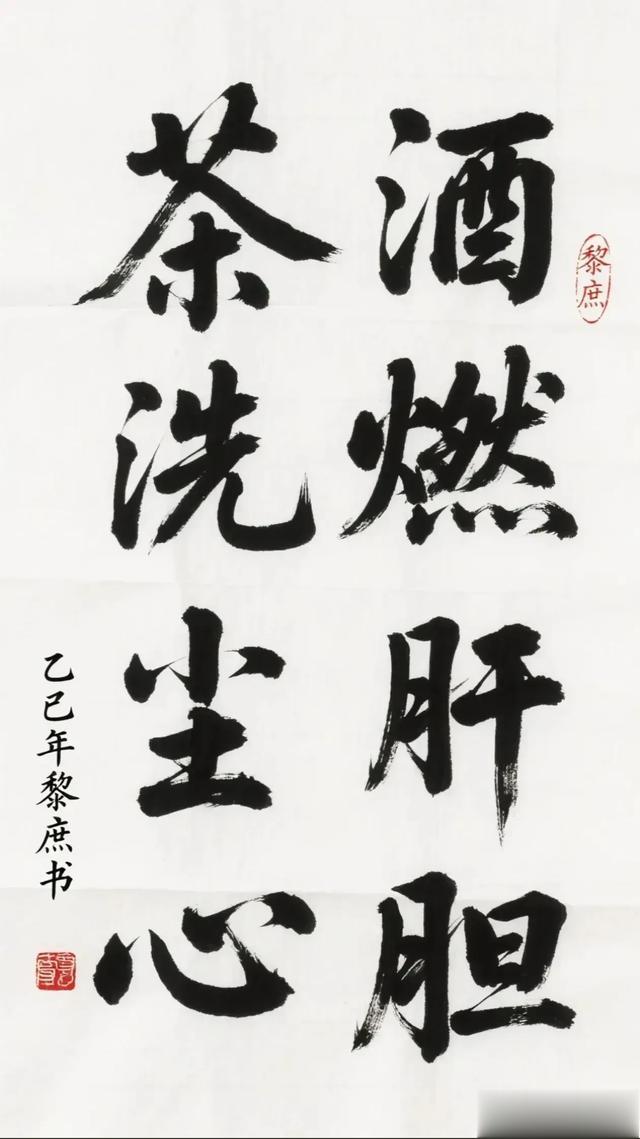 酒燃肝胆
茶洗尘心
乙巳年黎庶书
黎庶